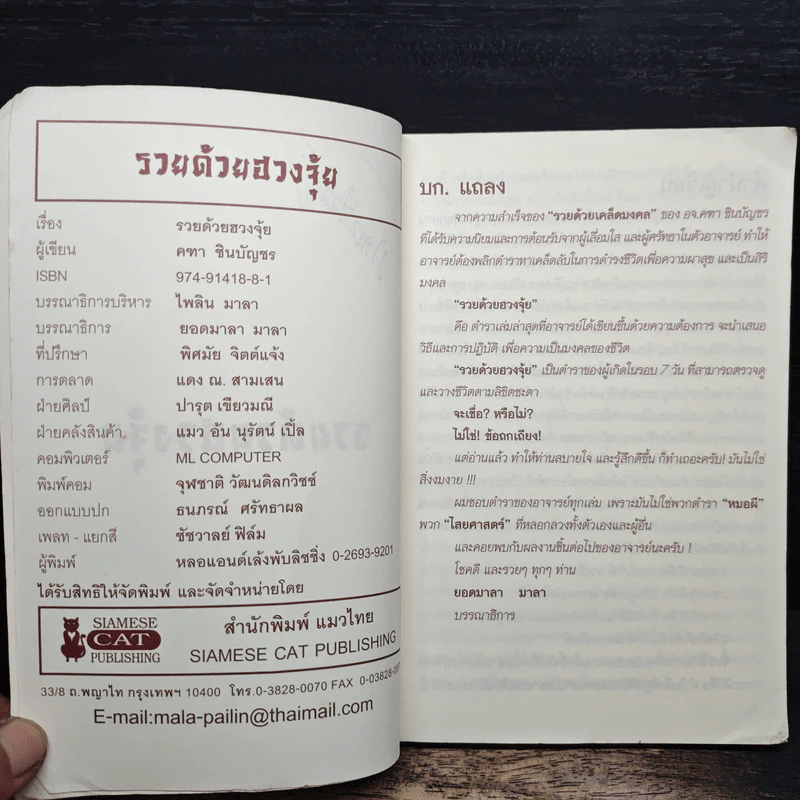 รวยด้วยฮวงจุ้ย
เรื่อง รวยด้วยฮวงจุ้ย
ผู้เขียน คฑา ชินบัญชร
ISBN 974-91418-8-1
บรรณาธิการบริหาร ไพลิน มาลา
บรรณาธิการ ยอดมาลา มาลา
ที่ปรึกษา พิศมัย จิตต์แจ้ง
การตลาด แดง ณ. สามเสน
ฝ่ายศิลป์ ปารุต เขียวมณี
ฝ่ายคลังสินค้า แมว อ้น นุรัตน์ เปิ้ล
คอมพิวเตอร์ ML COMPUTER
พิมพ์คอม จุฬชาติ วัฒนดิลกวิชช์
ออกแบบปก ธนภรณ์ ศรัทธาผล
เพลท - แยกสี ชัชวาลย์ ฟิล์ม
ผู้พิมพ์ หลอแอนด์เล้งพับลิซซิ่ง 0-2693-9201
ได้รับสิทธิให้จัดพิมพ์ และจัดจำหน่ายโดย
SIAMESE
CAT
PUBLISHING
สำนักพิมพ์ แมวไทย
SIAMESE CAT PUBLISHING
33/8 ถ.พญาไท กรุงเทพฯ 10400 โทร.0-3828-0070 FAX 0-03828-007
E-mail:mala-pailin@thaimail.com
บก. แถลง
จากความสำเร็จของ "รวยด้วยเคล็ดมงคล" ของ อจ.คฑา ชินบัญชร
ที่ได้รับความนิยมและการต้อนรับจากผู้เลื่อมใส และผู้ศรัทธาในตัวอาจารย์ ทำให้
อาจารย์ต้องพลิกตำราหาเคล็ดลับในการดำรงชีวิตเพื่อความผาสุข และเป็นสิริ
มงคล
"รวยด้วยฮวงจุ้ย"
คือ ตำราเล่มล่าสุดที่อาจารย์ได้เขียนขึ้นด้วยความต้องการ จะนำเสนอ
วิธีและการปฏิบัติ เพื่อความเป็นมงคลของชีวิต
"รวยด้วยฮวงจุ้ย" เป็นตำราของผู้เกิดในรอบ 7 วัน ที่สามารถตรวจดู
และวางชีวิตตามลิขิตชะตา
จะเชื่อ? หรือไม่?
ไม่ใช่! ข้อถกเถียง!
แต่อ่านแล้ว ทำให้ท่านสบายใจ และรู้สึกดีขึ้น ก็ทำเถอะครับ! มันไม่ใช่
สิ่งงมงาย !!!
ผมชอบตำราของอาจารย์ทุกเล่ม เพราะมันไม่ใช่พวกตำรา "หมอผี"
พวก "ไสยศาสตร์" ที่หลอกลวงทั้งตัวเองและผู้อื่น
และคอยพบกับผลงานชิ้นต่อไปของอาจารย์นะครับ !
โชคดี และรวยๆ ทุกๆ ท่าน
ยอดมาลา มาลา
บรรณาธิการ